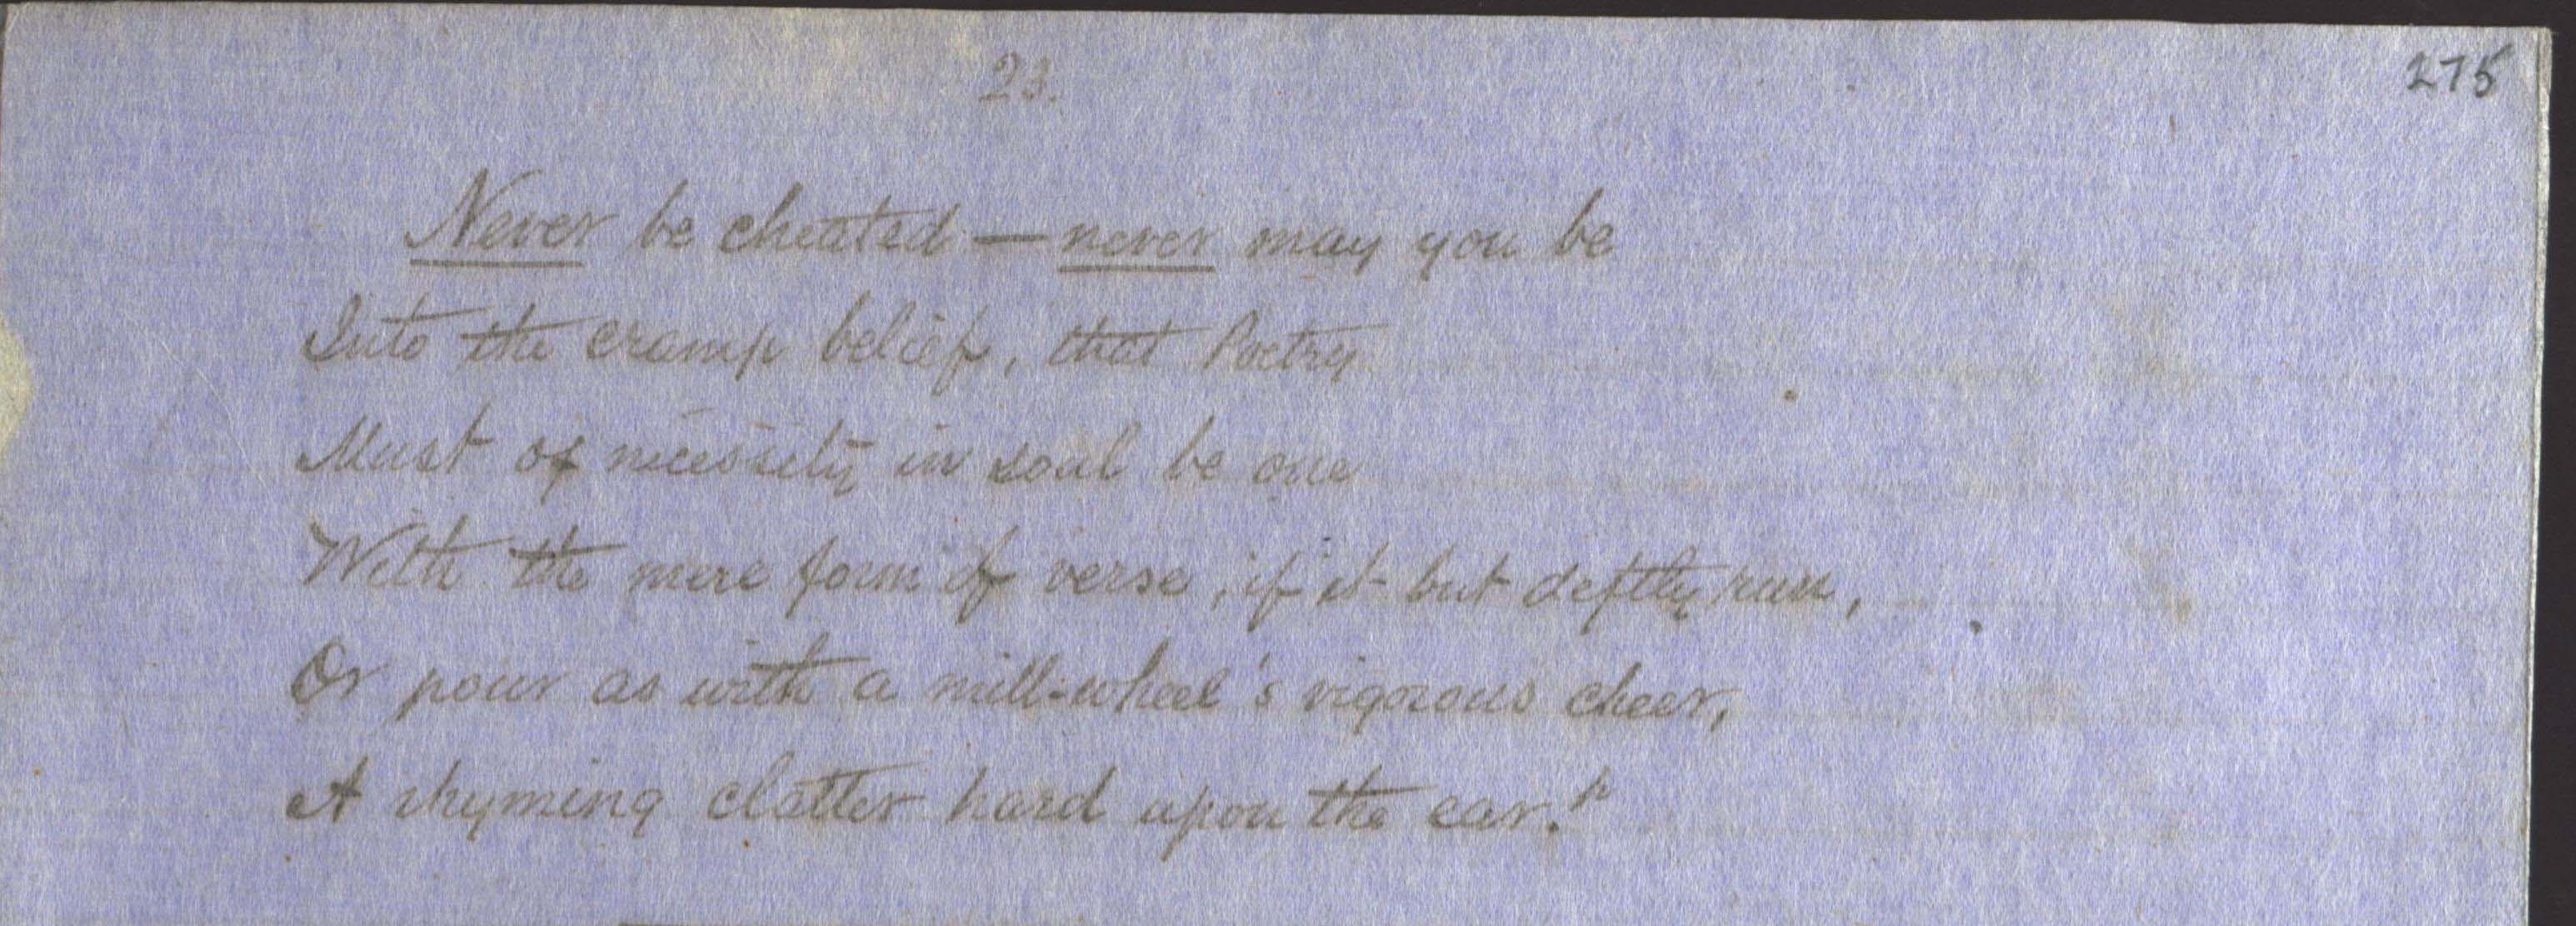 23.
275
Never be cheated — never may you be
Into the cramp belief, that Poetry
Must of necessity in soul be one
With the mere form of verse, if it but deftly run,
Or pour as with a mill-wheel's vigorous cheer,
A rhyming clatter hard upon the ear."